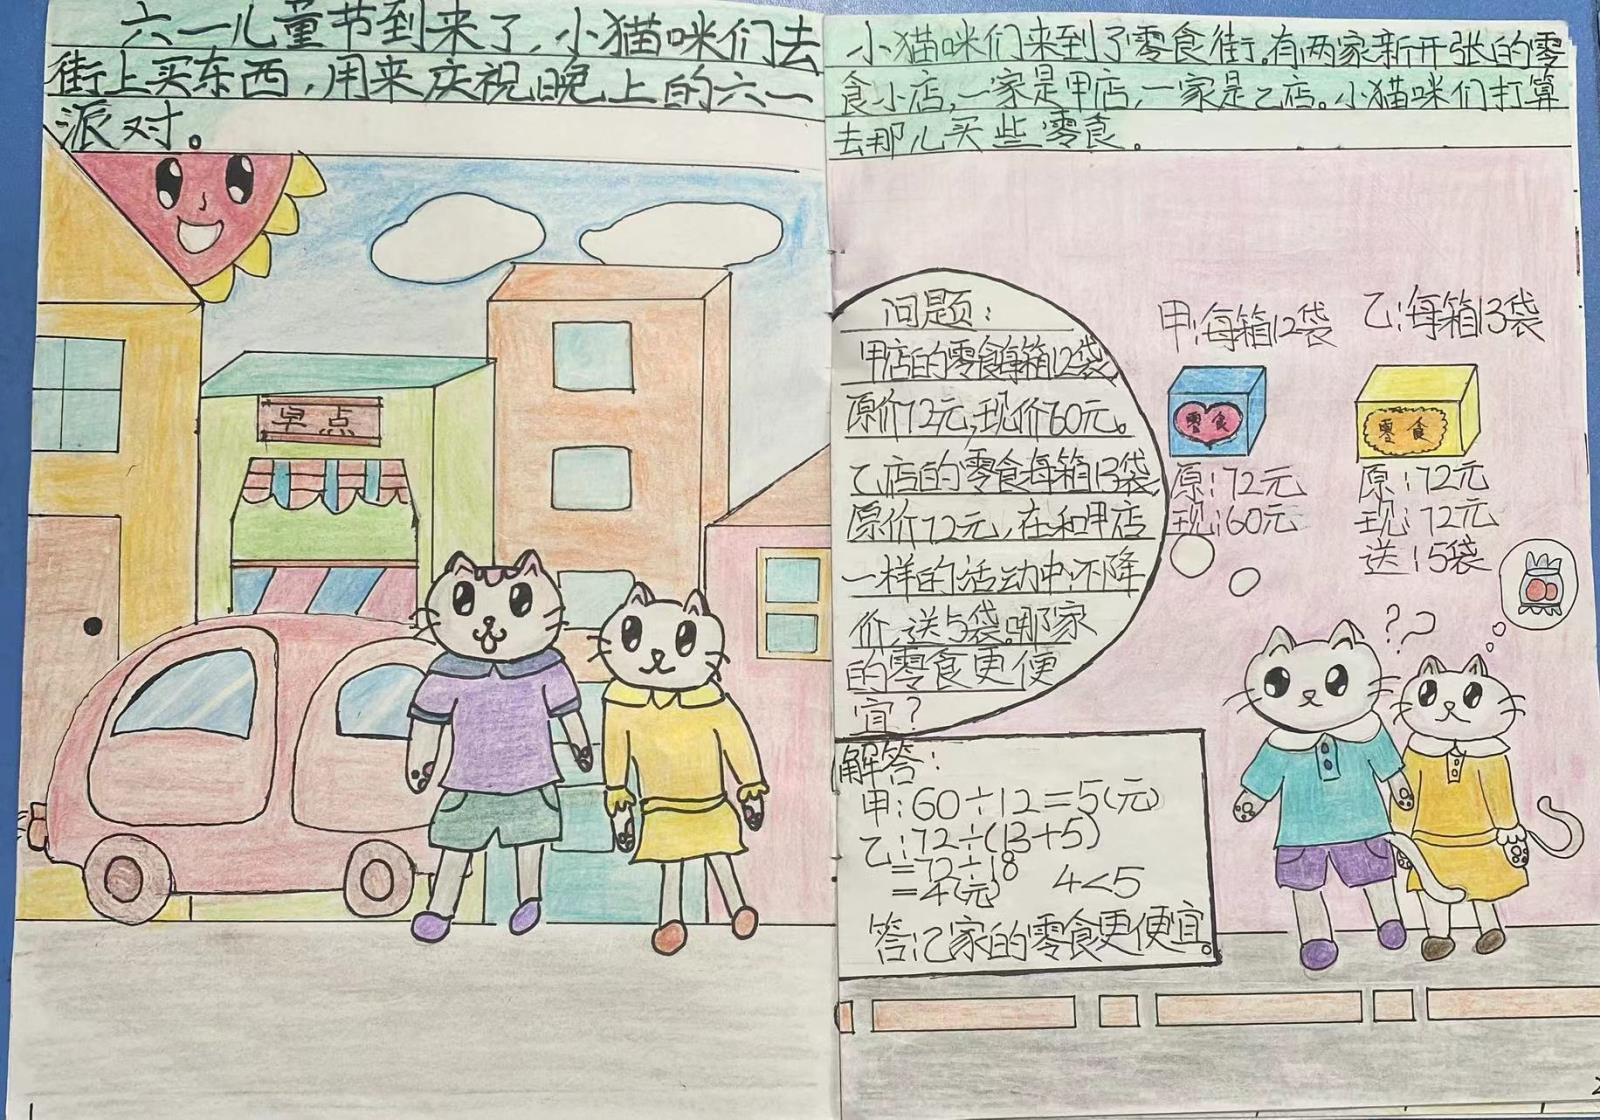 六一儿童节到来了，小猫咪们去
街上买东西，用来庆祝晚上的六一
派对。
早点
小猫咪们来到了零食街。有两家新开张的零
食小店，一家是甲店，一家是乙店。小猫咪们打算
去那儿买些零食。
问题：
甲店的零食每箱12袋，
原价72元，现价60元。
乙店的零食每箱13袋，
原价72元，在和甲店
一样的活动中，不降
价，送5袋。哪家
的零食更便
宜？
甲：每箱12袋
零食
原：72元
现：60元
乙：每箱13袋
零食
原：72元
现：72元
送：5袋
??
解答：
甲：60÷12=5(元)
乙：72÷(13+5)
=72÷18
=4(元) 4<5
答：乙家的零食更便宜。
1